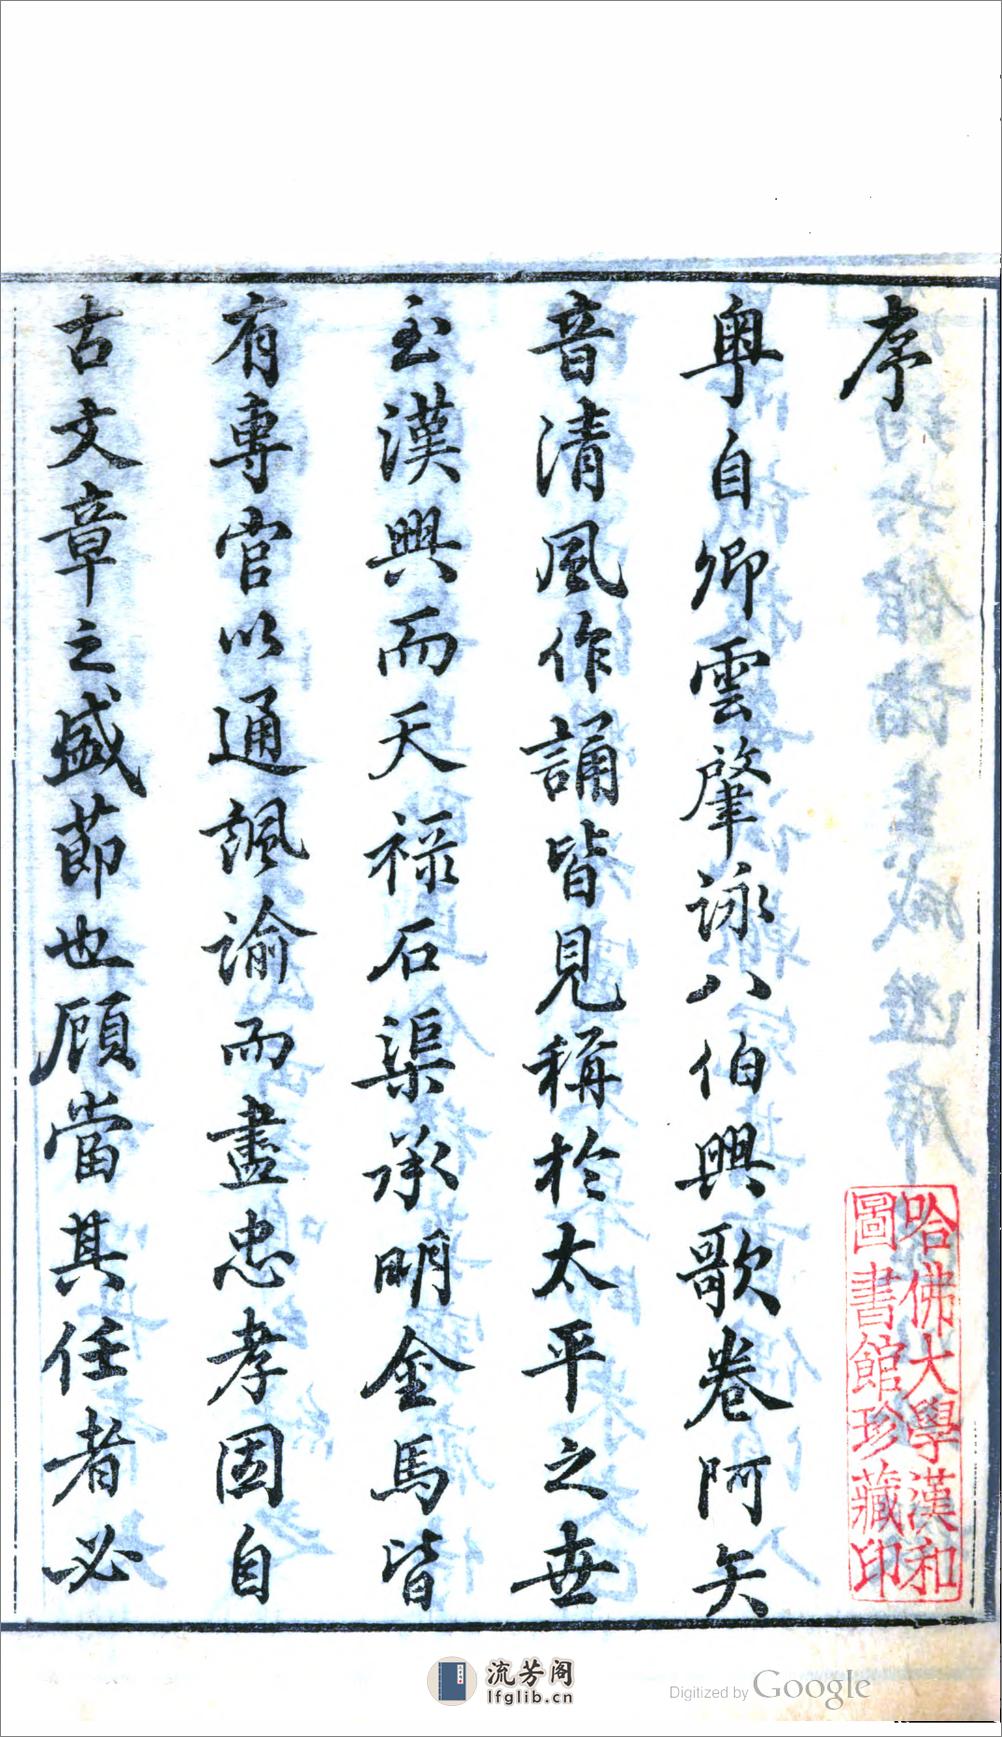 序
粤自卿雲肇詠八伯興歌卷阿矢
音清風作誦皆見稱於太平之世
至漢興而天祿石渠承明金馬皆
有專官以通諷諭而盡忠孝固自
古文章之盛節也顧當其任者必
哈佛大學漢和
圖書館珍藏印
流芳阁
lfglib.cn
Digitized by Google